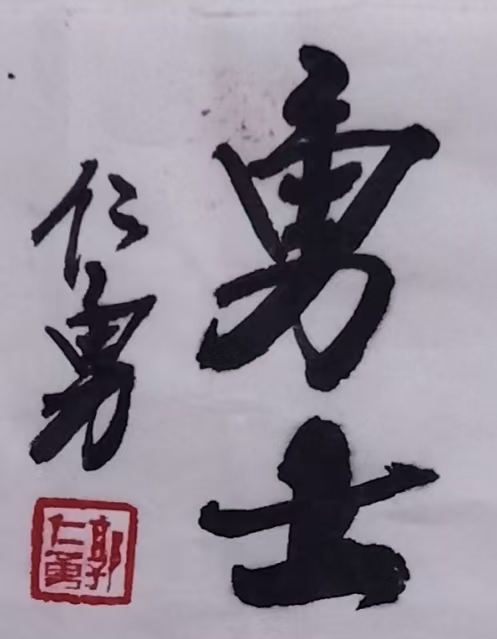 勇士
仁勇
郭仁勇